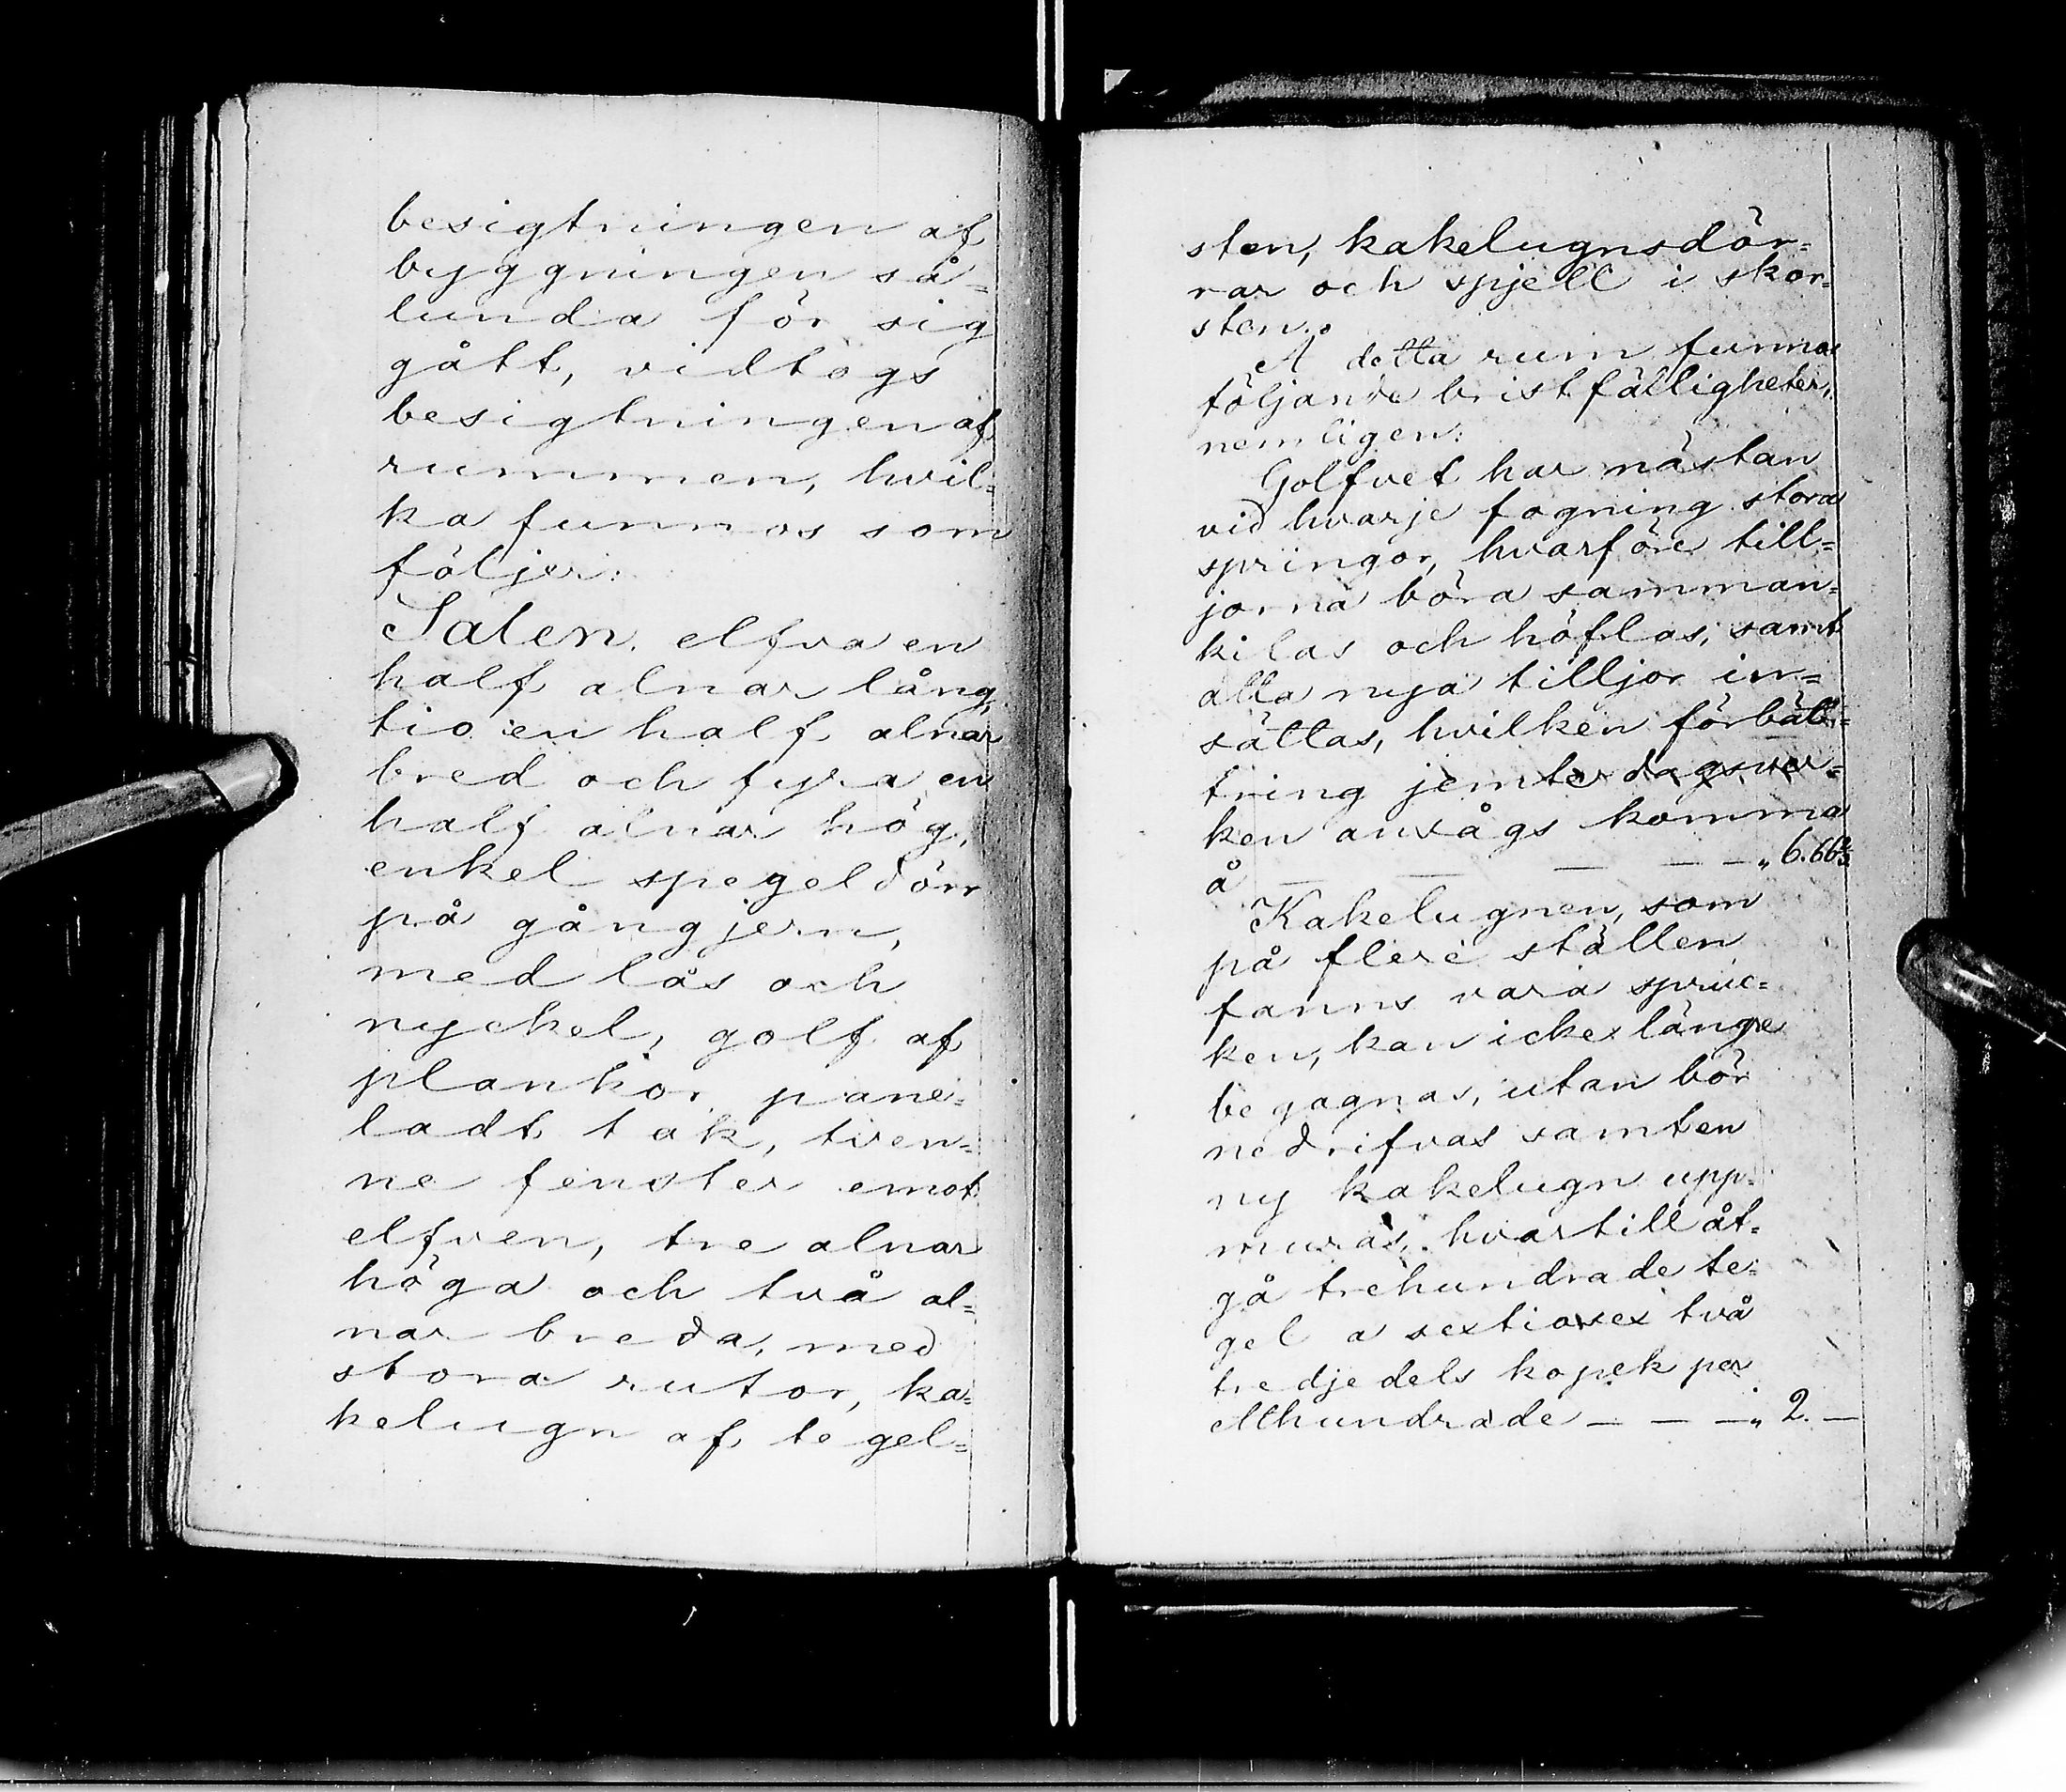 besigtningen af
byggningen så=
lunda för sig
gått, vidtogs
besigtningen af
rummen, hvil=
ka funnos som
följer:
Salen, elfva en
half alnar lång,
tio en half alnar
bred och fyra en
half alnar hög,
enkel spegeldörr
på gångjern,
med lås och
nyckel, golf af
plankor, pane=
ladt tak, tven=
ne fenster emot
elfven, tre alnar
höga och två al=
nar breda, med
stora rutor, ka=
kelugn af tegel=
sten, kakelugnsdör=
rar och spjell i skor=
sten.
Å detta rum funnos
följande bristfälligheter,
nemligen:
Golfvet har nästan
vid hvarje fogning stora
springor, hvarföre till=
jorna böra samman=
kilas och höflas, samt
alla nya tilljor in=
sättas, hvilken förbätt=
tring jemte dagsver=
ken ansågs komma
å — — — — — „ 6.66⅔
Kakelugnen, som
på flere ställen
fanns vara spruc=
ken, kan icke länge
begagnas, utan bör
nedrifvas samt en
ny kakelugn upp=
muras, hvartill åt=
gå trehundrade te=
gel a sextiosex två
tredjedels kopek per
etthundrade — — — „ 2. —